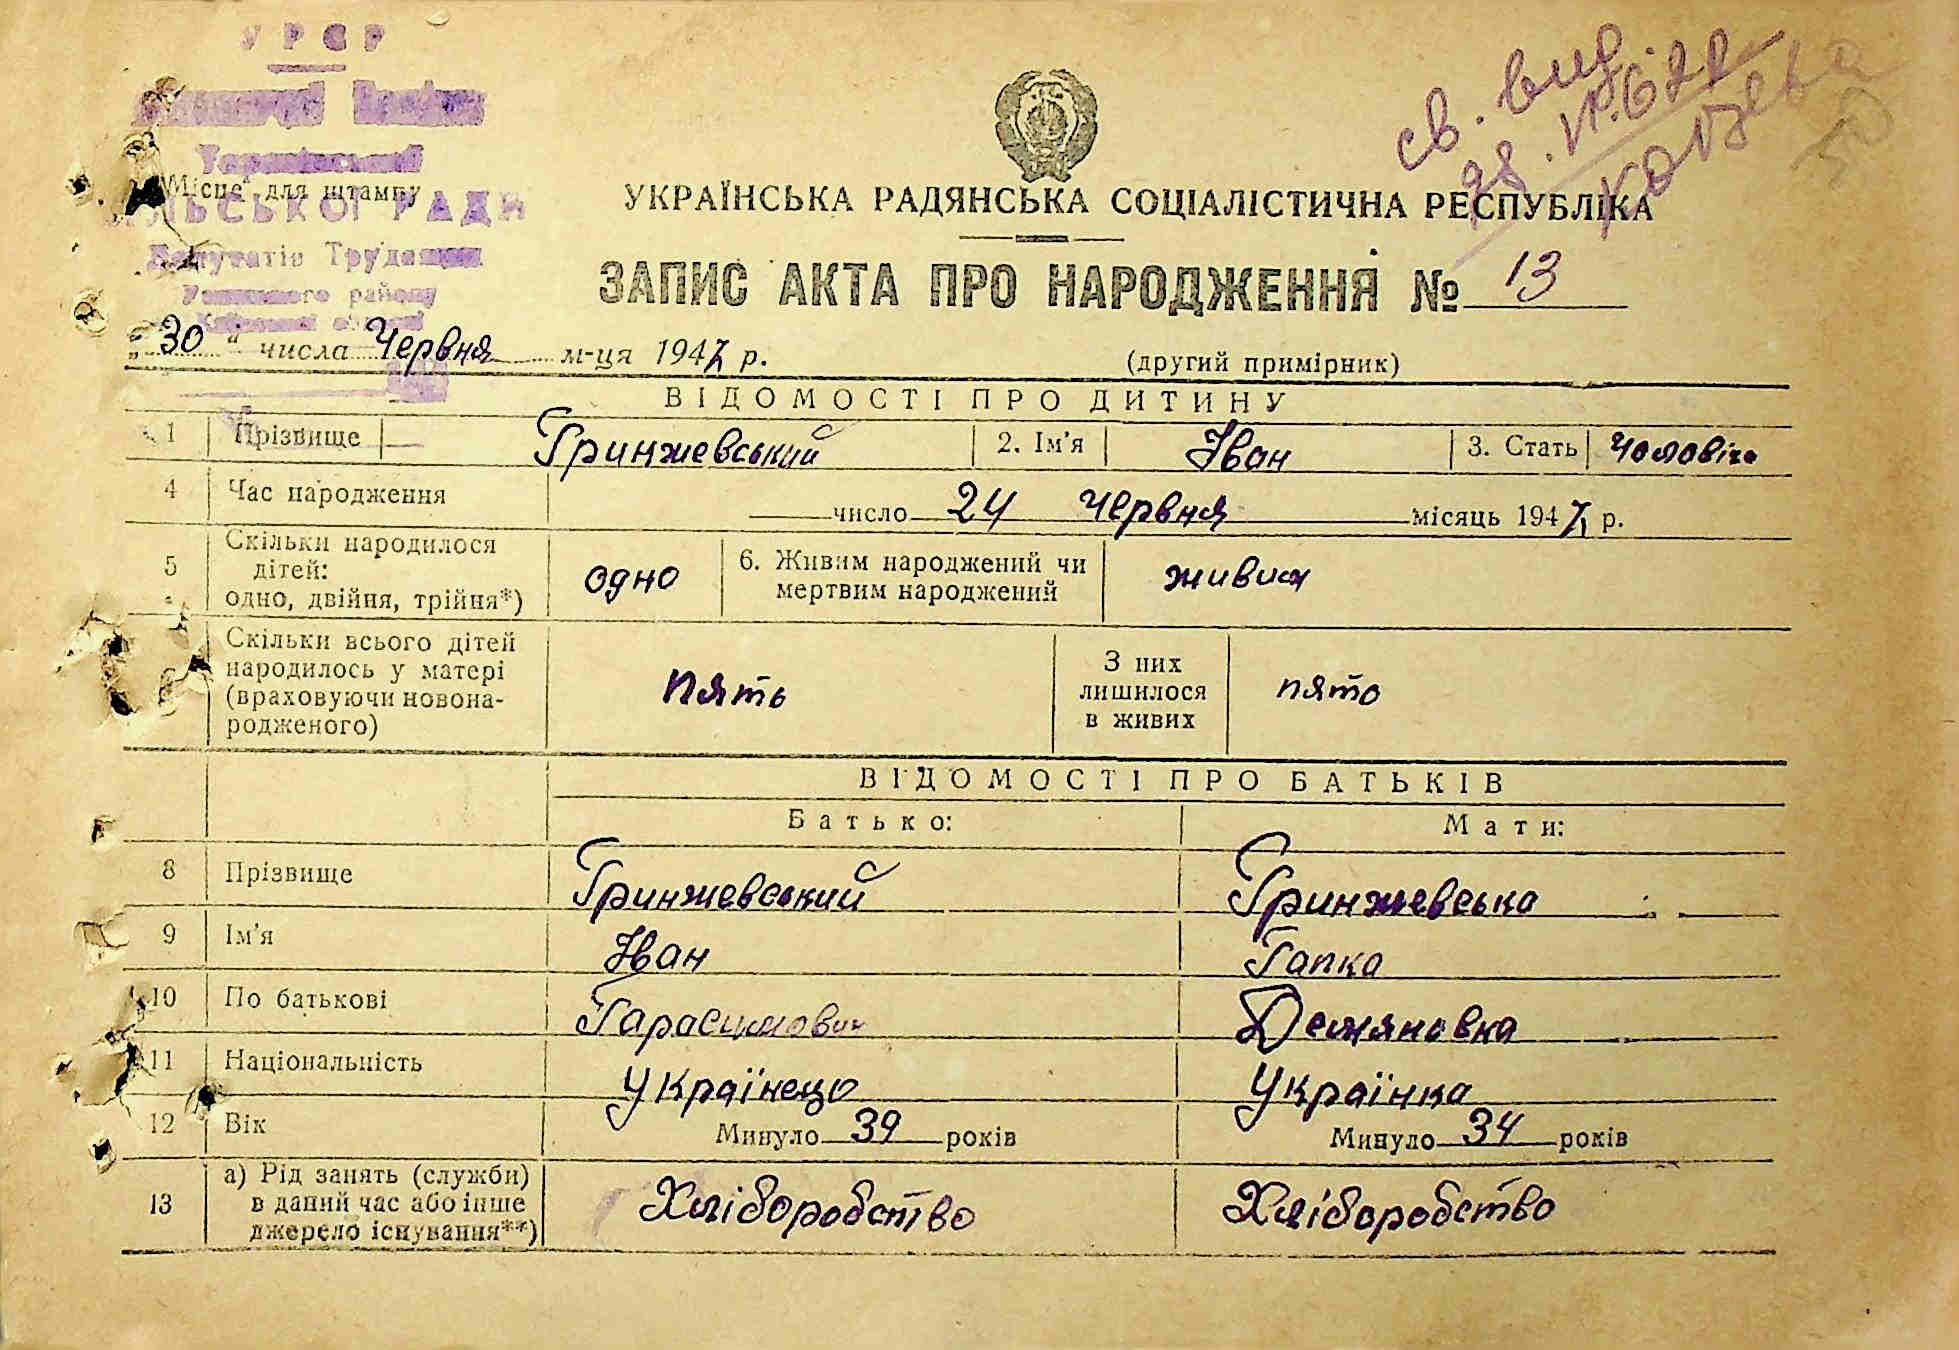 УРСР
"Місце" для штампу
СІЛЬСЬКОЇ РАДИ
Депутатів Трудящих
району
області
св. вид
28.VI.62р
УКРАЇНСЬКА РАДЯНСЬКА СОЦІАЛІСТИЧНА РЕСПУБЛІКА
ЗАПИС АКТА ПРО НАРОДЖЕННЯ № 13
„30" числа Червня м-ця 1947 р. (другий примірник)
ВІДОМОСТІ ПРО ДИТИНУ
1 Прізвище Гринжевський 2. Ім'я Іван 3. Стать Чоловіча
4 Час народження число 24 Червня місяць 1947 р.
5 Скільки народилося дітей: одно, двійня, трійня*) одно 6. Живим народжений чи мертвим народжений живим
Скільки всього дітей народилось у матері (враховуючи новонародженого) пять З них лишилося в живих пято
ВІДОМОСТІ ПРО БАТЬКІВ
Батько: Мати:
8 Прізвище Гринжевський Гринжевська
9 Ім'я Іван Гапка
10 По батькові Гарасимович Демяновна
11 Національність Українець Українка
12 Вік Минуло 39 років Минуло 34 років
13 а) Рід занять (служби) в даний час або інше джерело існування**) Хліборобство Хліборобство